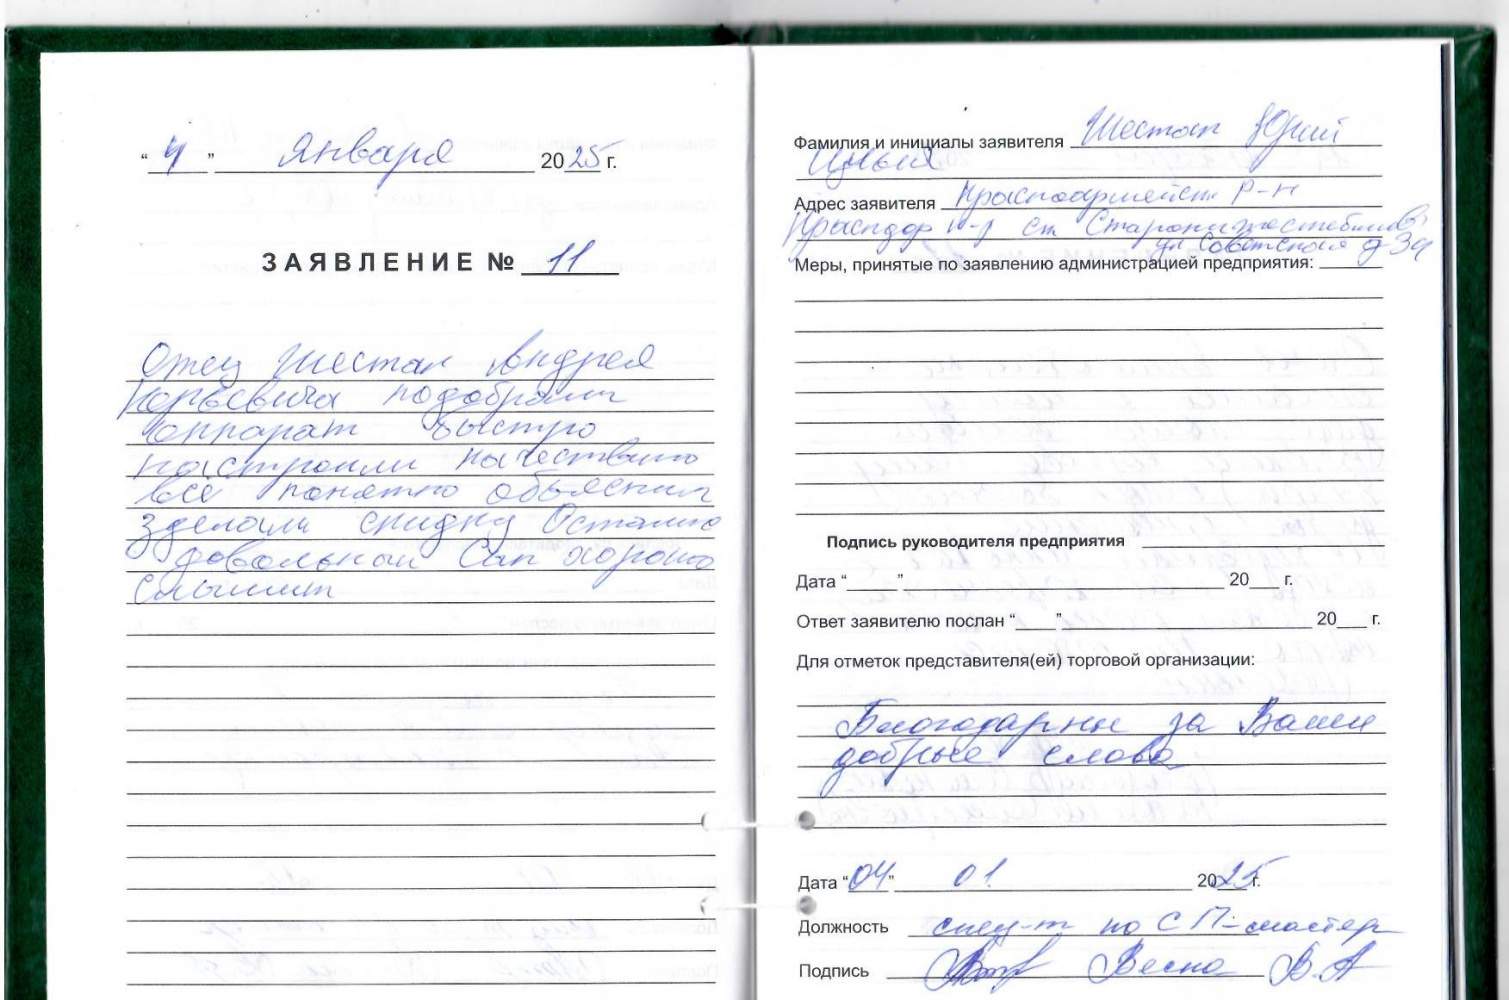 “ 4 ” января 2025 г.
ЗАЯВЛЕНИЕ № 11
Отец Шестак Андрея
Юрьевича подобрали
аппарат быстро
настроили качествено
всё понятно объяснили
зделали скидку Осталис
довольный Сам хорошо
слышит
Фамилия и инициалы заявителя Шестак Юрий
Ильич
Адрес заявителя Красноармейск р-н
Краснодар к-р ст Старонижестеблиевс
ул Советская д-34
Меры, принятые по заявлению администрацией предприятия:
Подпись руководителя предприятия
Дата “ ” 20 г.
Ответ заявителю послан “ ” 20 г.
Для отметок представителя(ей) торговой организации:
Благодарны за Ваши
добрые слова
Дата “04” 01. 2025 г.
Должность спец-т по СП-мастер
Подпись Весна В.А